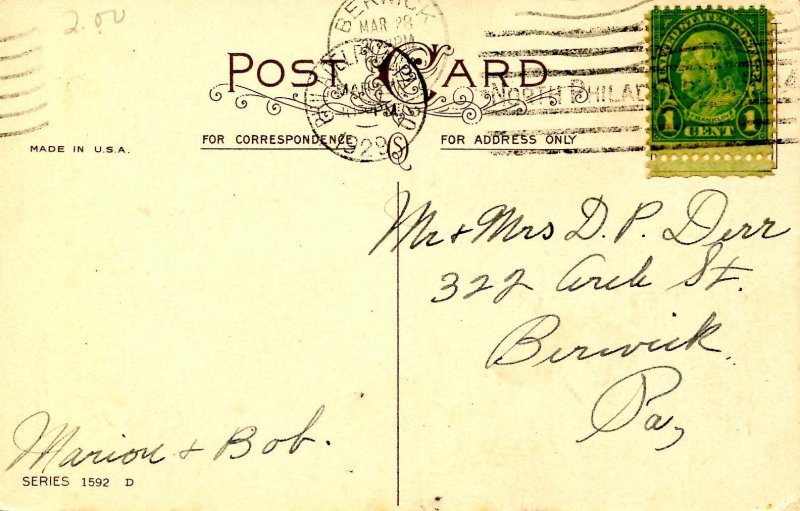 2.00
BERWICK
MAR 28
PM
1929
NORTH PHILAD
UNITED STATES POSTAGE
FRANKLIN
1 CENT 1
POST CARD
FOR CORRESPONDENCE
FOR ADDRESS ONLY
MADE IN U.S.A.
Mr + Mrs D. P. Derr
322 Arch St.
Berwick,
Pa,
Marion + Bob.
SERIES 1592 D